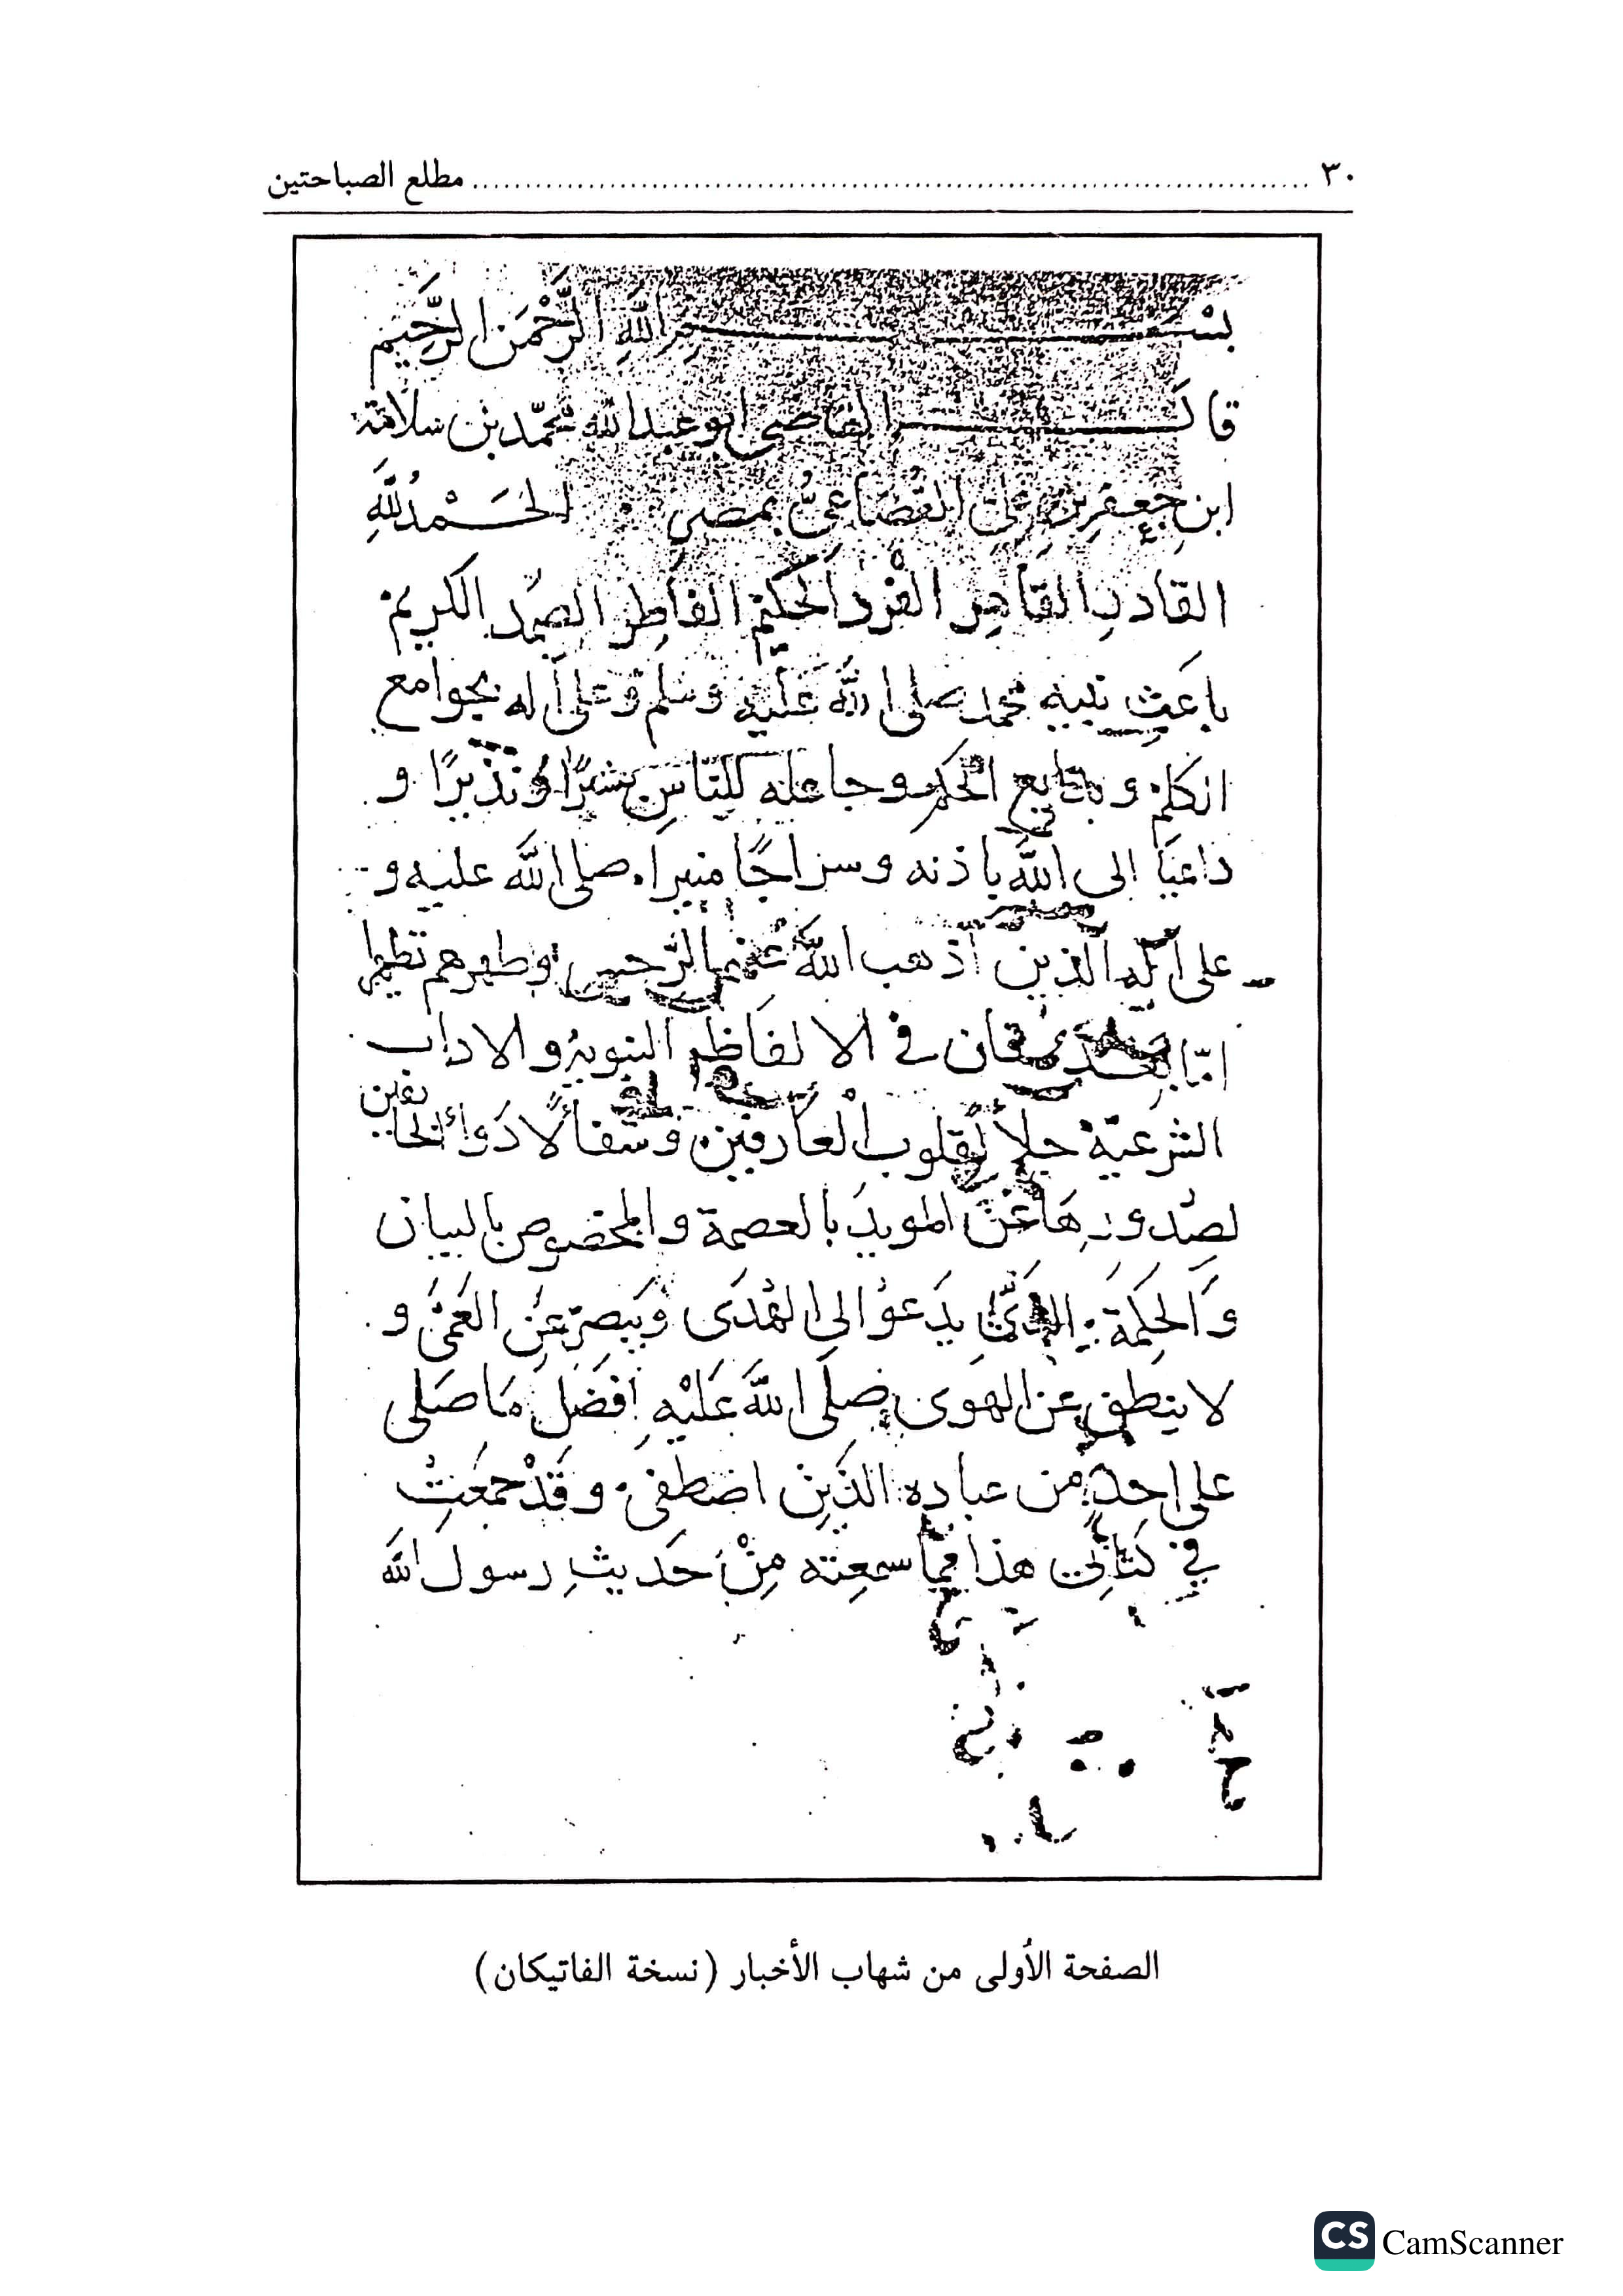 ٣٠ ........ مطلع الصباحتين
بسم الله الرَّحْمَن الرَّحِيم
قال القاضي ابو عبد الله محمّد بن سلامة
ابن جعفر بن علي القُضَاعيُّ بمصر الحَمْدُ لِلَّهِ
القادر القاهر الفرد الحكيم الفاطر الصمد الكريم
باعث نبيه محمد صلى الله عليه وسلم وعلى آله بجوامع
الكلم و الحكم وجاعله للنّاس بشيرًا ونذيرًا و
داعيًا الى الله باذنه وسراجًا منيرا. صلى الله عليه و
على آله الذين أذهب الله عنهم الرجس وطهرهم تطهيرا
امّا بعد فان في الالفاظ النبوية والاداب
الشرعيّة جلاً لقلوب العارفين وشفاً لادواء الخائفين
لصدورها عن المويد بالعصمة والمخصوص بالبيان
وَالحِكمَة الذي يدعوا الى الهُدَى ويبصر عن العَمى و
لا ينطق عن الهوى صلى اللَّه عَلَيْهِ افضَل مَا صَلى
على احد من عباده الذين اصطفى. وقَدْ جمعت
في كتابي هذا مما سمعته مِنْ حَديثِ رسول الله
الصفحة الأولى من شهاب الأخبار (نسخة الفاتيكان)
CS CamScanner